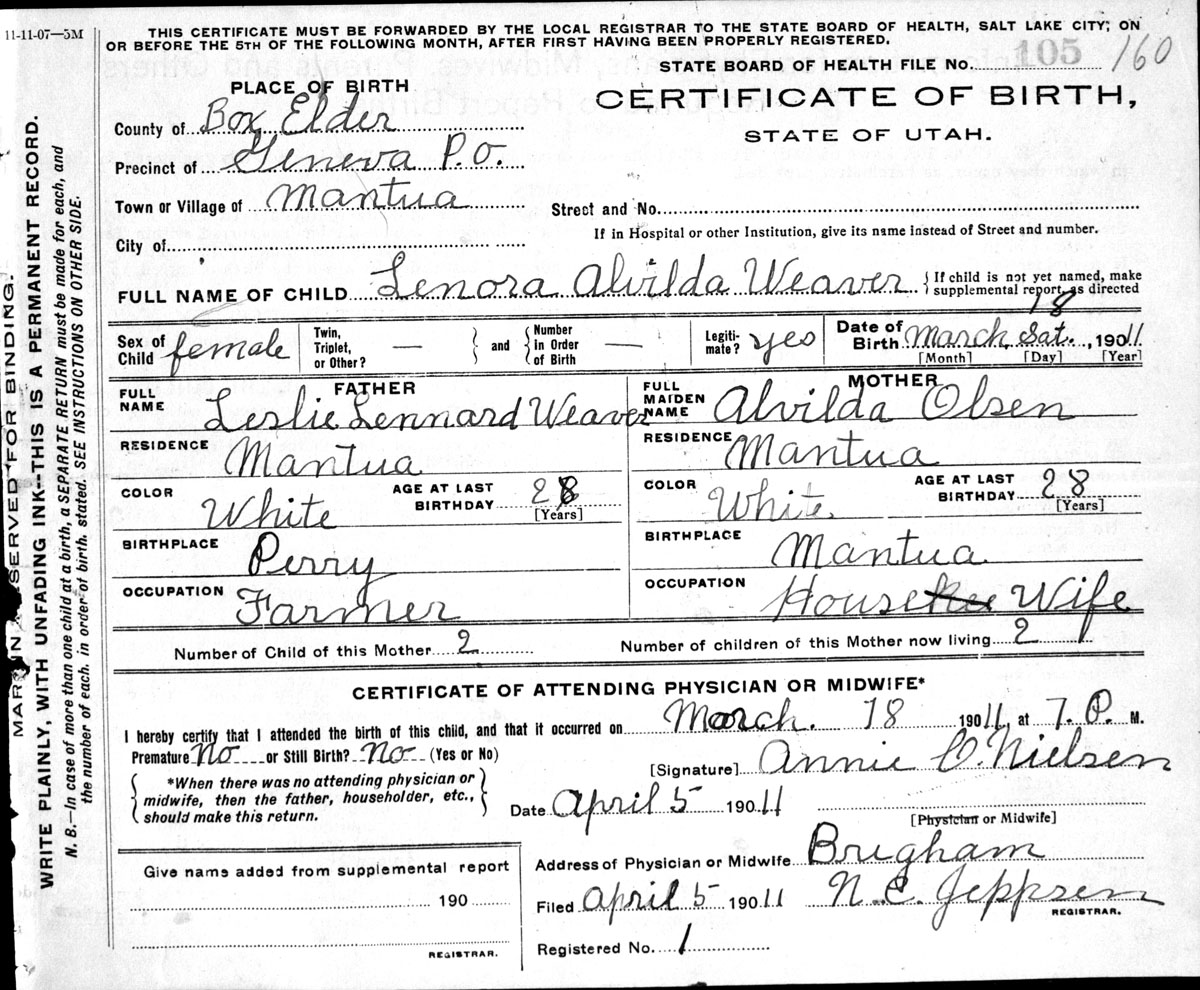 11-11-07—5M
THIS CERTIFICATE MUST BE FORWARDED BY THE LOCAL REGISTRAR TO THE STATE BOARD OF HEALTH, SALT LAKE CITY; ON
OR BEFORE THE 5TH OF THE FOLLOWING MONTH, AFTER FIRST HAVING BEEN PROPERLY REGISTERED.
STATE BOARD OF HEALTH FILE No. 105 160
PLACE OF BIRTH
CERTIFICATE OF BIRTH,
STATE OF UTAH.
County of Box Elder
Precinct of Geneva P.O.
Town or Village of Mantua
Street and No.
If in Hospital or other Institution, give its name instead of Street and number.
City of
FULL NAME OF CHILD Lenora Alvilda Weaver { If child is not yet named, make
supplemental report, as directed
Sex of Child female Twin, Triplet, or Other? — } and { Number in Order of Birth — Legiti-mate? yes Date of Birth March Sat. 18, 19011
[Month] [Day] [Year]
FATHER
FULL NAME Leslie Lennard Weaver
RESIDENCE Mantua
COLOR White AGE AT LAST BIRTHDAY 28 [Years]
BIRTHPLACE Perry
OCCUPATION Farmer
MOTHER
FULL MAIDEN NAME Alvilda Olsen
RESIDENCE Mantua
COLOR White AGE AT LAST BIRTHDAY 28 [Years]
BIRTHPLACE Mantua
OCCUPATION House Wife
Number of Child of this Mother 2 Number of children of this Mother now living 2
CERTIFICATE OF ATTENDING PHYSICIAN OR MIDWIFE*
I hereby certify that I attended the birth of this child, and that it occurred on March. 18 19011, at 7. P. M.
Premature No or Still Birth? No (Yes or No)
[Signature] Annie C. Nielsen
{ *When there was no attending physician or
midwife, then the father, householder, etc.,
should make this return. }
Date April 5 19011
[Physician or Midwife]
Address of Physician or Midwife Brigham
Filed April 5 19011 N. E. Jeppsen
REGISTRAR.
Registered No. 1
Give name added from supplemental report
190
REGISTRAR.
MARGIN RESERVED FOR BINDING.
WRITE PLAINLY, WITH UNFADING INK--THIS IS A PERMANENT RECORD.
N. B.—In case of more than one child at a birth, a SEPARATE RETURN must be made for each, and
the number of each, in order of birth, stated. SEE INSTRUCTIONS ON OTHER SIDE.